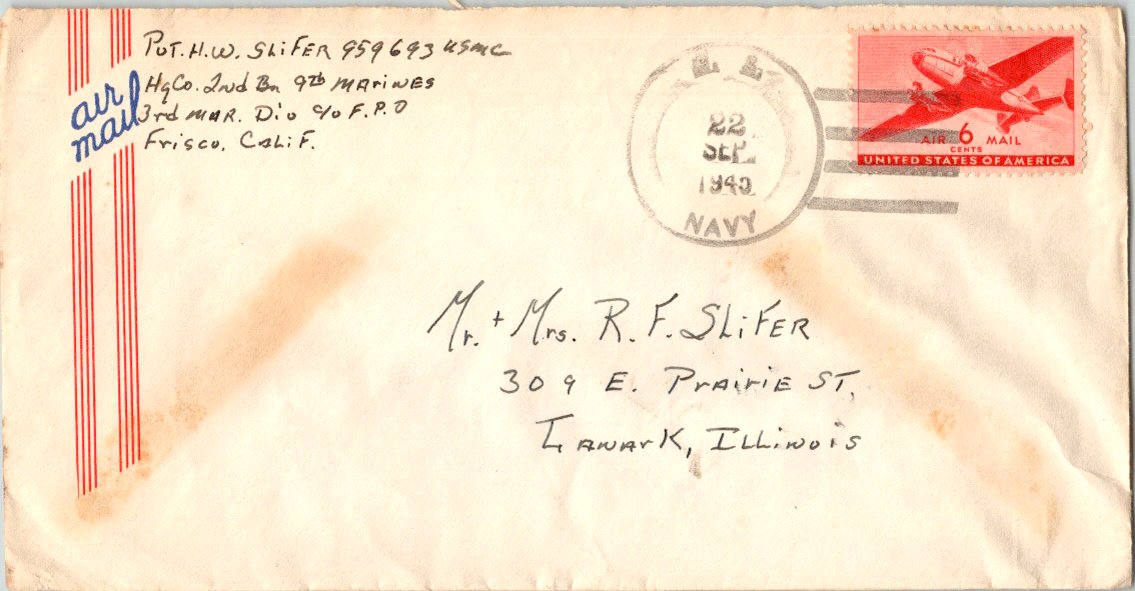 Pvt. H.W. SLiFER 959693 USMC
HqCo. 2nd Bn 9th MariNES
3rd MAR. Div c/o F.P.O
Frisco, CaliF.
air
mail
22
SEP
1945
NAVY
AIR 6 MAIL
CENTS
UNITED STATES OF AMERICA
Mr. + Mrs. R. F. SLiFER
309 E. PrAiriE ST.
LANArK, ILLiNois